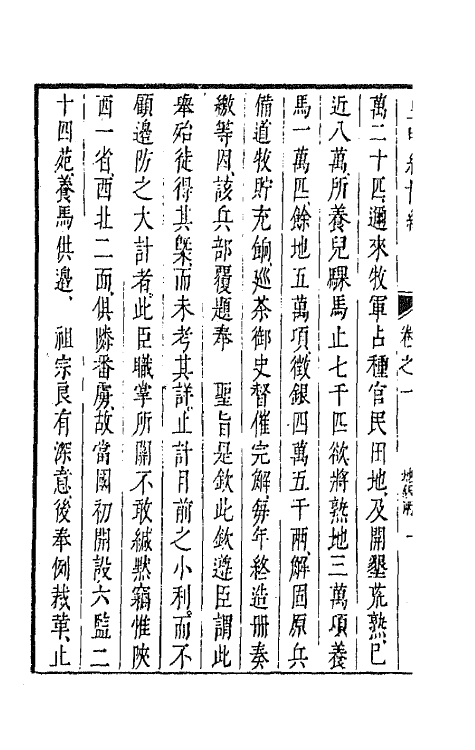 卷之一
萬二十匹、邇來牧軍占種官民田地、及開墾荒熟、已
近八萬、所養兒騍馬止七千匹、欲將熟地三萬項養
馬一萬匹、餘地五萬項、徵銀四萬五千兩、解固原兵
備道收貯充餉、巡茶御史督催完解、每年終造冊奏
繳等因、該兵部覆題奉　聖旨是欽此欽遵臣謂此
舉殆徒得其槩而未考其詳、止計目前之小利、而不
顧邊防之大計者、此臣職掌所關不敢緘默竊惟陝
西一省、西北二面、俱隣番虜、故當國初開設六監二
十四苑、養馬供邊、　祖宗良有深意、後奉例裁革、止